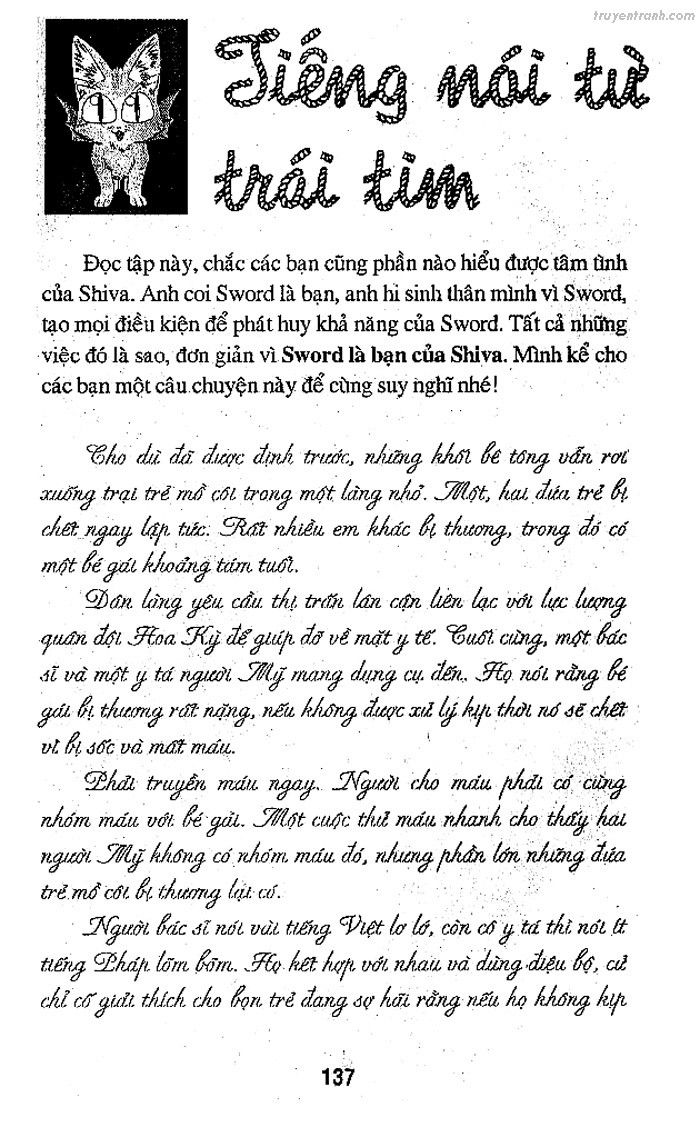 truyentranh.com
Tiếng nói từ
trái tim
Đọc tập này, chắc các bạn cũng phần nào hiểu được tâm tình
của Shiva. Anh coi Sword là bạn, anh hi sinh thân mình vì Sword,
tạo mọi điều kiện để phát huy khả năng của Sword. Tất cả những
việc đó là sao, đơn giản vì Sword là bạn của Shiva. Mình kể cho
các bạn một câu chuyện này để cùng suy nghĩ nhé!
Cho dù đã được định trước, những khối bê tông vẫn rơi
xuống trại trẻ mồ côi trong một làng nhỏ. Một, hai đứa trẻ bị
chết ngay lập tức. Rất nhiều em khác bị thương, trong đó có
một bé gái khoảng tám tuổi.
Dân làng yêu cầu thị trấn lân cận liên lạc với lực lượng
quân đội Hoa Kỳ để giúp đỡ về mặt y tế. Cuối cùng, một bác
sĩ và một y tá người Mỹ mang dụng cụ đến. Họ nói rằng bé
gái bị thương rất nặng, nếu không được xử lý kịp thời nó sẽ chết
vì bị sốc và mất máu.
Phải truyền máu ngay. Người cho máu phải có cùng
nhóm máu với bé gái. Một cuộc thử máu nhanh cho thấy hai
người Mỹ không có nhóm máu đó, nhưng phần lớn những đứa
trẻ mồ côi bị thương lại có.
Người bác sĩ nói vài tiếng Việt lơ lớ, còn cô y tá thì nói ít
tiếng Pháp lõm bõm. Họ kết hợp với nhau và dùng điệu bộ, cử
chỉ cố giải thích cho bọn trẻ đang sợ hãi rằng nếu họ không kịp
137